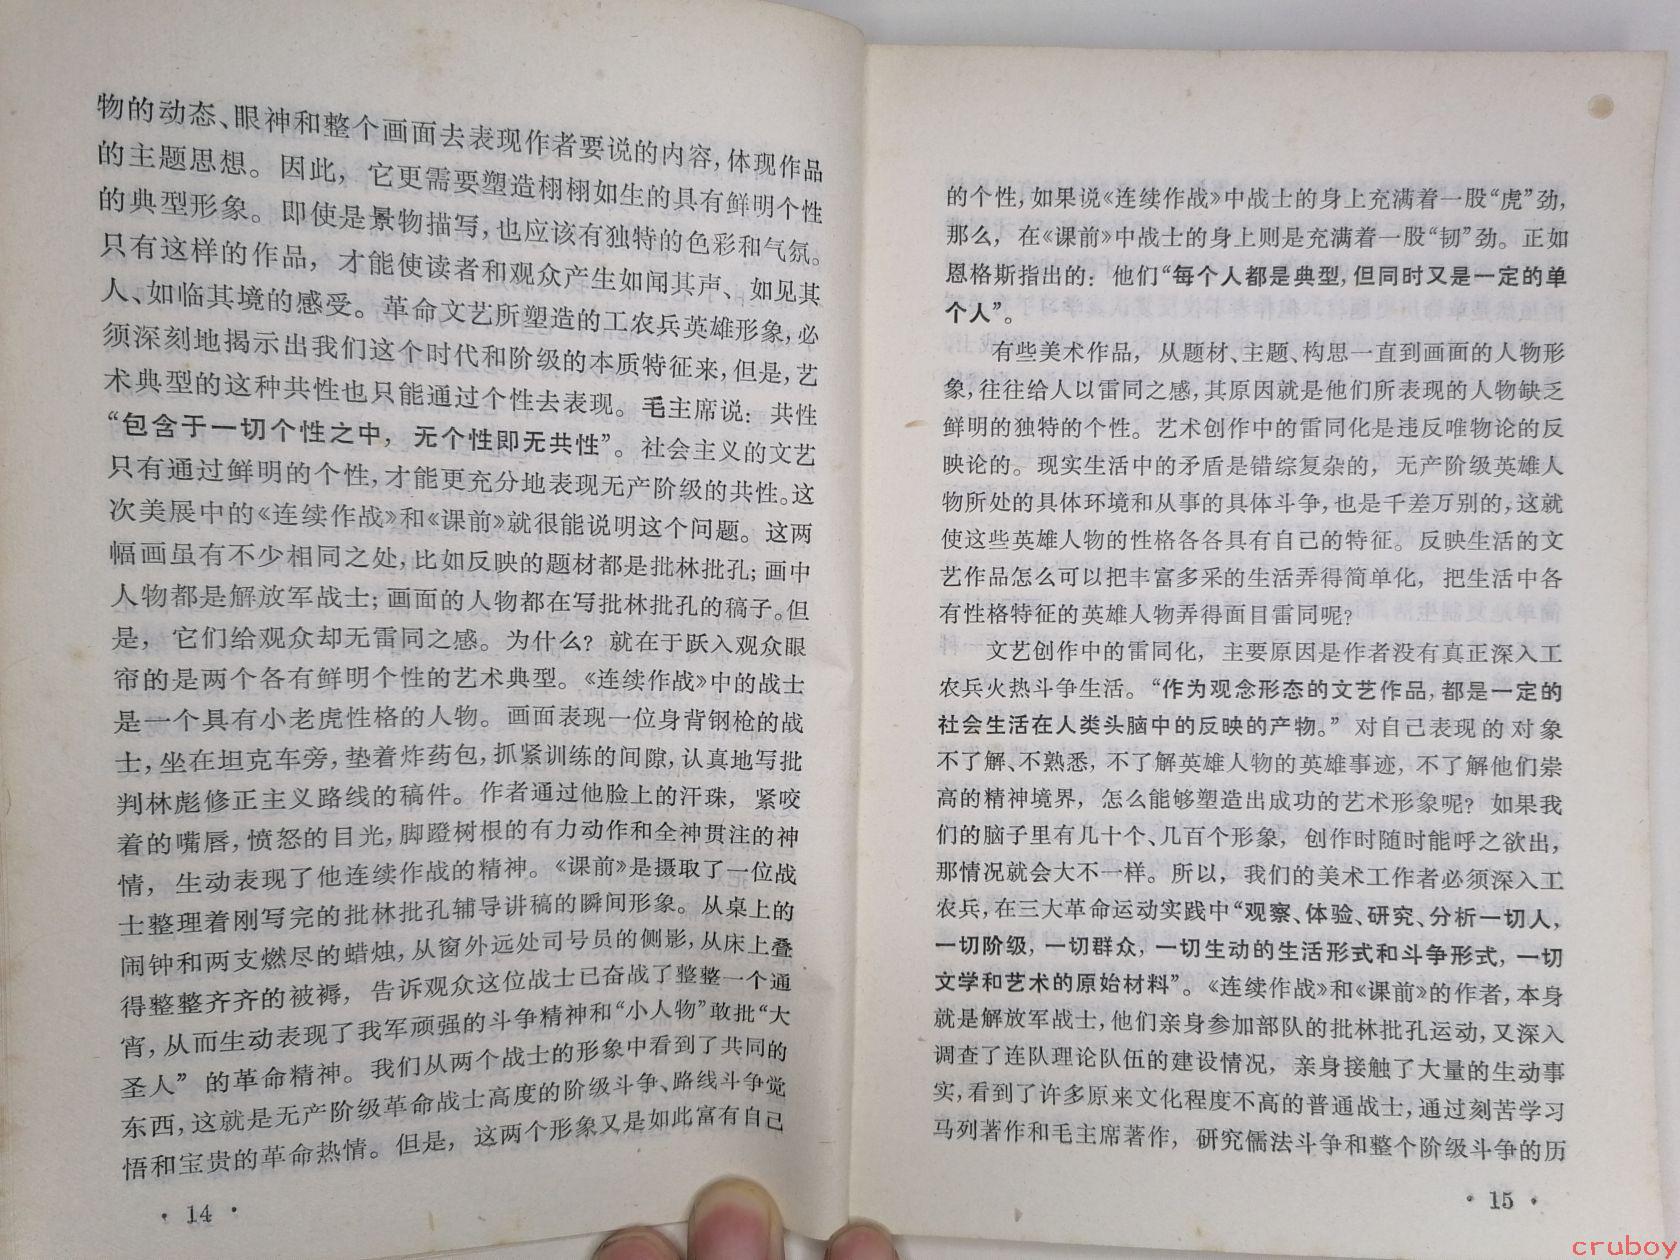 物的动态、眼神和整个画面去表现作者要说的内容，体现作品
的主题思想。因此，它更需要塑造栩栩如生的具有鲜明个性
的典型形象。即使是景物描写，也应该有独特的色彩和气氛。
只有这样的作品，才能使读者和观众产生如闻其声、如见其
人、如临其境的感受。革命文艺所塑造的工农兵英雄形象，必
须深刻地揭示出我们这个时代和阶级的本质特征来，但是，艺
术典型的这种共性也只能通过个性去表现。毛主席说：共性
“包含于一切个性之中，无个性即无共性”。社会主义的文艺
只有通过鲜明的个性，才能更充分地表现无产阶级的共性。这
次美展中的《连续作战》和《课前》就很能说明这个问题。这两
幅画虽有不少相同之处，比如反映的题材都是批林批孔；画中
人物都是解放军战士；画面的人物都在写批林批孔的稿子。但
是，它们给观众却无雷同之感。为什么？就在于跃入观众眼
帘的是两个各有鲜明个性的艺术典型。《连续作战》中的战士
是一个具有小老虎性格的人物。画面表现一位身背钢枪的战
士，坐在坦克车旁，垫着炸药包，抓紧训练的间隙，认真地写批
判林彪修正主义路线的稿件。作者通过他脸上的汗珠，紧咬
着的嘴唇，愤怒的目光，脚蹬树根的有力动作和全神贯注的神
情，生动表现了他连续作战的精神。《课前》是摄取了一位战
士整理着刚写完的批林批孔辅导讲稿的瞬间形象。从桌上的
闹钟和两支燃尽的蜡烛，从窗外远处司号员的侧影，从床上叠
得整整齐齐的被褥，告诉观众这位战士已奋战了整整一个通
宵，从而生动表现了我军顽强的斗争精神和“小人物”敢批“大
圣人”的革命精神。我们从两个战士的形象中看到了共同的
东西，这就是无产阶级革命战士高度的阶级斗争、路线斗争觉
悟和宝贵的革命热情。但是，这两个形象又是如此富有自己
· 14 ·
的个性，如果说《连续作战》中战士的身上充满着一股“虎”劲，
那么，在《课前》中战士的身上则是充满着一股“韧”劲。正如
恩格斯指出的：他们“每个人都是典型，但同时又是一定的单
个人”。
有些美术作品，从题材、主题、构思一直到画面的人物形
象，往往给人以雷同之感，其原因就是他们所表现的人物缺乏
鲜明的独特的个性。艺术创作中的雷同化是违反唯物论的反
映论的。现实生活中的矛盾是错综复杂的，无产阶级英雄人
物所处的具体环境和从事的具体斗争，也是千差万别的，这就
使这些英雄人物的性格各各具有自己的特征。反映生活的文
艺作品怎么可以把丰富多采的生活弄得简单化，把生活中各
有性格特征的英雄人物弄得面目雷同呢？
文艺创作中的雷同化，主要原因是作者没有真正深入工
农兵火热斗争生活。“作为观念形态的文艺作品，都是一定的
社会生活在人类头脑中的反映的产物。”对自己表现的对象
不了解、不熟悉，不了解英雄人物的英雄事迹，不了解他们崇
高的精神境界，怎么能够塑造出成功的艺术形象呢？如果我
们的脑子里有几十个、几百个形象，创作时随时能呼之欲出，
那情况就会大不一样。所以，我们的美术工作者必须深入工
农兵，在三大革命运动实践中“观察、体验、研究、分析一切人，
一切阶级，一切群众，一切生动的生活形式和斗争形式，一切
文学和艺术的原始材料”。《连续作战》和《课前》的作者，本身
就是解放军战士，他们亲身参加部队的批林批孔运动，又深入
调查了连队理论队伍的建设情况，亲身接触了大量的生动事
实，看到了许多原来文化程度不高的普通战士，通过刻苦学习
马列著作和毛主席著作，研究儒法斗争和整个阶级斗争的历
· 15 ·
cruboy